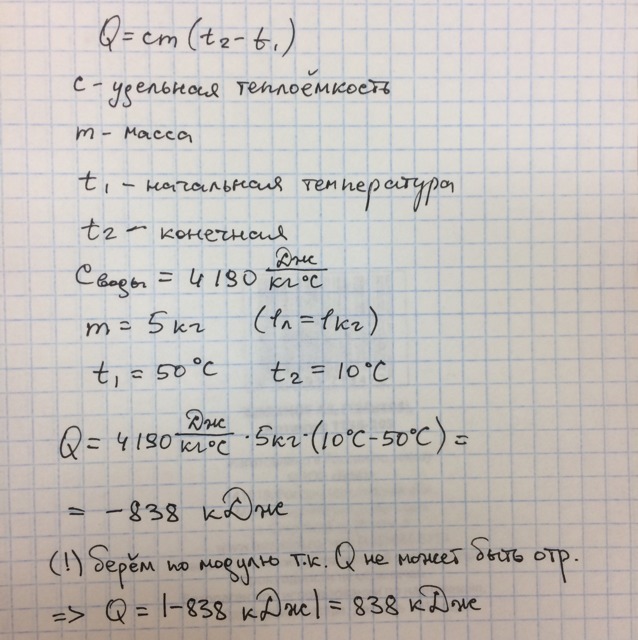 Q = cm (t₂ - t₁)
c - удельная теплоёмкость
m - масса
t₁ - начальная температура
t₂ - конечная
Cводы = 4190 Дж/кг°C
m = 5 кг (1л = 1кг)
t₁ = 50°C t₂ = 10°C
Q = 4190 Дж/кг°C · 5кг · (10°C - 50°C) =
= -838 кДж
(!) берём по модулю т.к. Q не может быть отр.
=> Q = |-838 кДж| = 838 кДж